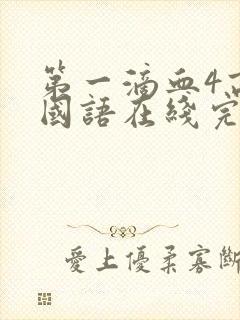 第一滴血4
國語在綫完
愛上優柔寡斷